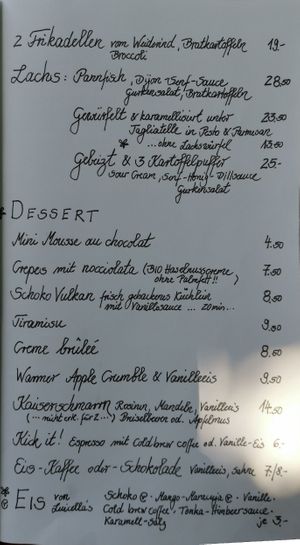 2 Frikadellen vom Weiderind, Bratkartoffeln 19.-
Broccoli
Lachs: Pannfish, Dijon-Senf-Sauce 28,50
Gurkensalat, Bratkartoffeln
Gewürfelt & karamellisiert unter 23.50
Tagliatelle in Pesto & Parmesan
* ...ohne Lachswürfel 13.50
Gebeizt & 3 Kartoffelpuffer 25.-
Sour Cream, Senf-Honig-Dillsauce
Gurkensalat
* DESSERT
Mini Mousse au chocolat 4.50
Crepes mit nocciolata (BIO Haselnusscreme 7.50
ohne Palmfett!!)
Schoko Vulkan frisch gebackenes Küchlein 8,50
mit Vanillesauce ...20min...
Tiramisu 9,50
Creme brûleé 8.50
Warmer Apple Crumble & Vanilleeis 9,50
Kaiserschmarrn Rosinen, Mandeln, Vanilleeis 14.50
(...nicht erk. für 2...) Preiselbeeren od. Apfelmus
Kick it! Espresso mit Cold brew coffee od. Vanille-Eis 6.-
Eis-Kaffee oder -Schokolade Vanilleeis, Sahne 7/8.-
EIS von Schoko · Mango-Maracuja · Vanille ·
Luicella's Cold brew coffee · Tonka-Himbeersauce ·
Karamell-Salz je 3.-